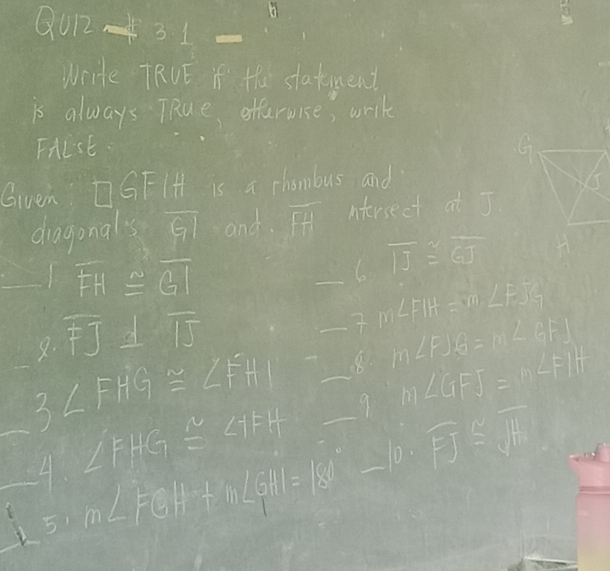 QUIZ # 3.1
Write TRUE if the statement
is always TRUE, otherwise, write
FALSE.
Given: □ GFIH is a rhombus and
diagonals GI and FH intersect at J.
1 FH ≅ GI
2. FJ ⊥ IJ
3 ∠FHG ≅ ∠FHI
4. ∠FHG ≅ ∠IFH
5. m∠FGH + m∠GHI = 180°
6. IJ ≅ GJ
7 m∠FIH = m∠FJG
8. m∠FJG = m∠GFJ
9. m∠GFJ = m∠FIH
10. FJ ≅ JH
G
J
H